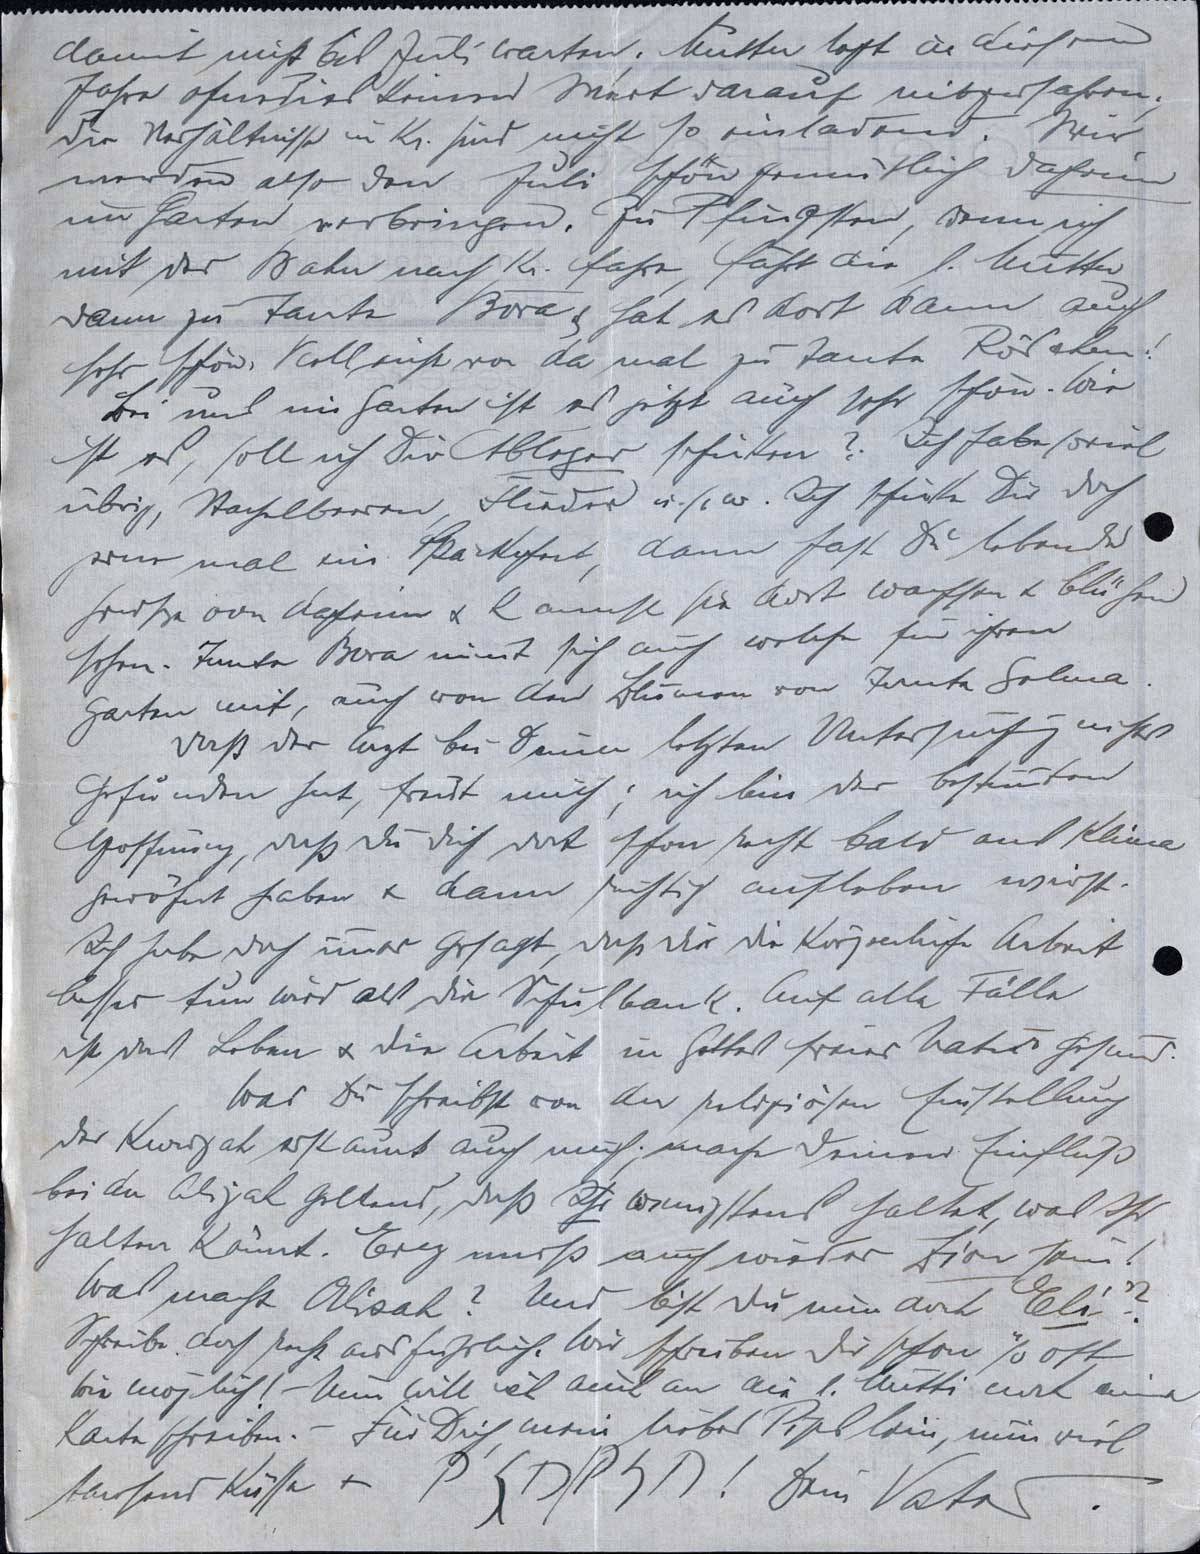 damit nicht bis Juli warten. Mutter legt in diesem
Jahre ohnedies keinen Wert darauf mitzufahren,
die Verhältnisse in Kr. sind nicht so einladend. Wir
werden also den Juli schön gemütlich daheim
im Garten verbringen. Zu Pfingsten, wenn ich
mit der Bahn nach Kr. fahre, fährt die l. Mutter
dann zu Tante Bora & hat es dort dann auch
sehr schön. Vielleicht von da mal zu Tante Röschen!
Bei uns im Garten ist es jetzt auch sehr schön. Wie
ist es, soll ich Dir Ableger schicken? Ich habe soviel
übrig, Stachelbeeren, Flieder u.s.w. Ich schicke Dir doch
gerne mal ein Päckchen, dann hast Du lebende
Grüsse von daheim & kannst sie dort wachsen & blühen
sehen. Tante Bora nimmt sich auch welche für ihren
Garten mit, auch von den Blumen von Tante Selma.
Daß der Arzt bei Deiner letzten Untersuchung nichts
gefunden hat, freut mich; ich bin der bestimmten
Hoffnung, daß Du Dich dort schon recht bald ans Klima
gewöhnt haben & dann richtig aufleben wirst.
Ich habe doch immer gesagt, daß Dir die körperliche Arbeit
besser tun wird als die Schulbank. Auf alle Fälle
ist das Leben & die Arbeit in Gottes freier Natur gesund.
Was Du schreibst von der religiösen Einstellung
der Kwuzah erstaunt auch mich; mache Deinen Einfluß
bei der Alijah geltend, daß Ihr wenigstens haltet, was Ihr
halten könnt. Erez muss auch wieder Zion sein!
Was macht Alisah? Und bist Du nun dort "Eli"?
Schreibe doch recht ausführlich. Wir schreiben Dir schon so oft
wie möglich! – Nun will ich auch an die l. Mutti noch eine
Karte schreiben. – Für Dich, mein liebes Pipslein, nun viel
tausend Küsse & ! Dein Vater.